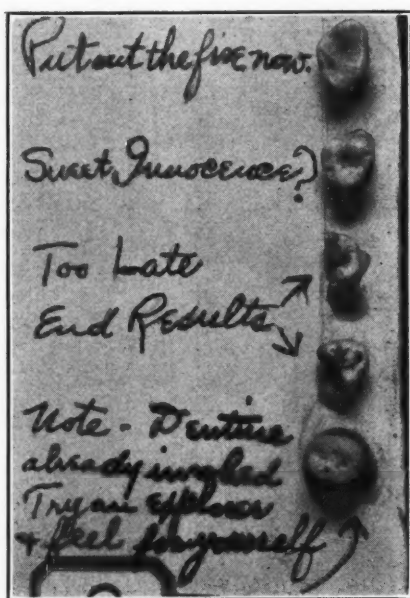 Put out the fire now.
Sweet Innocence?
Too Late
End Results
Note - Dentine
already involved
Try an explorer
+ feel for yourself